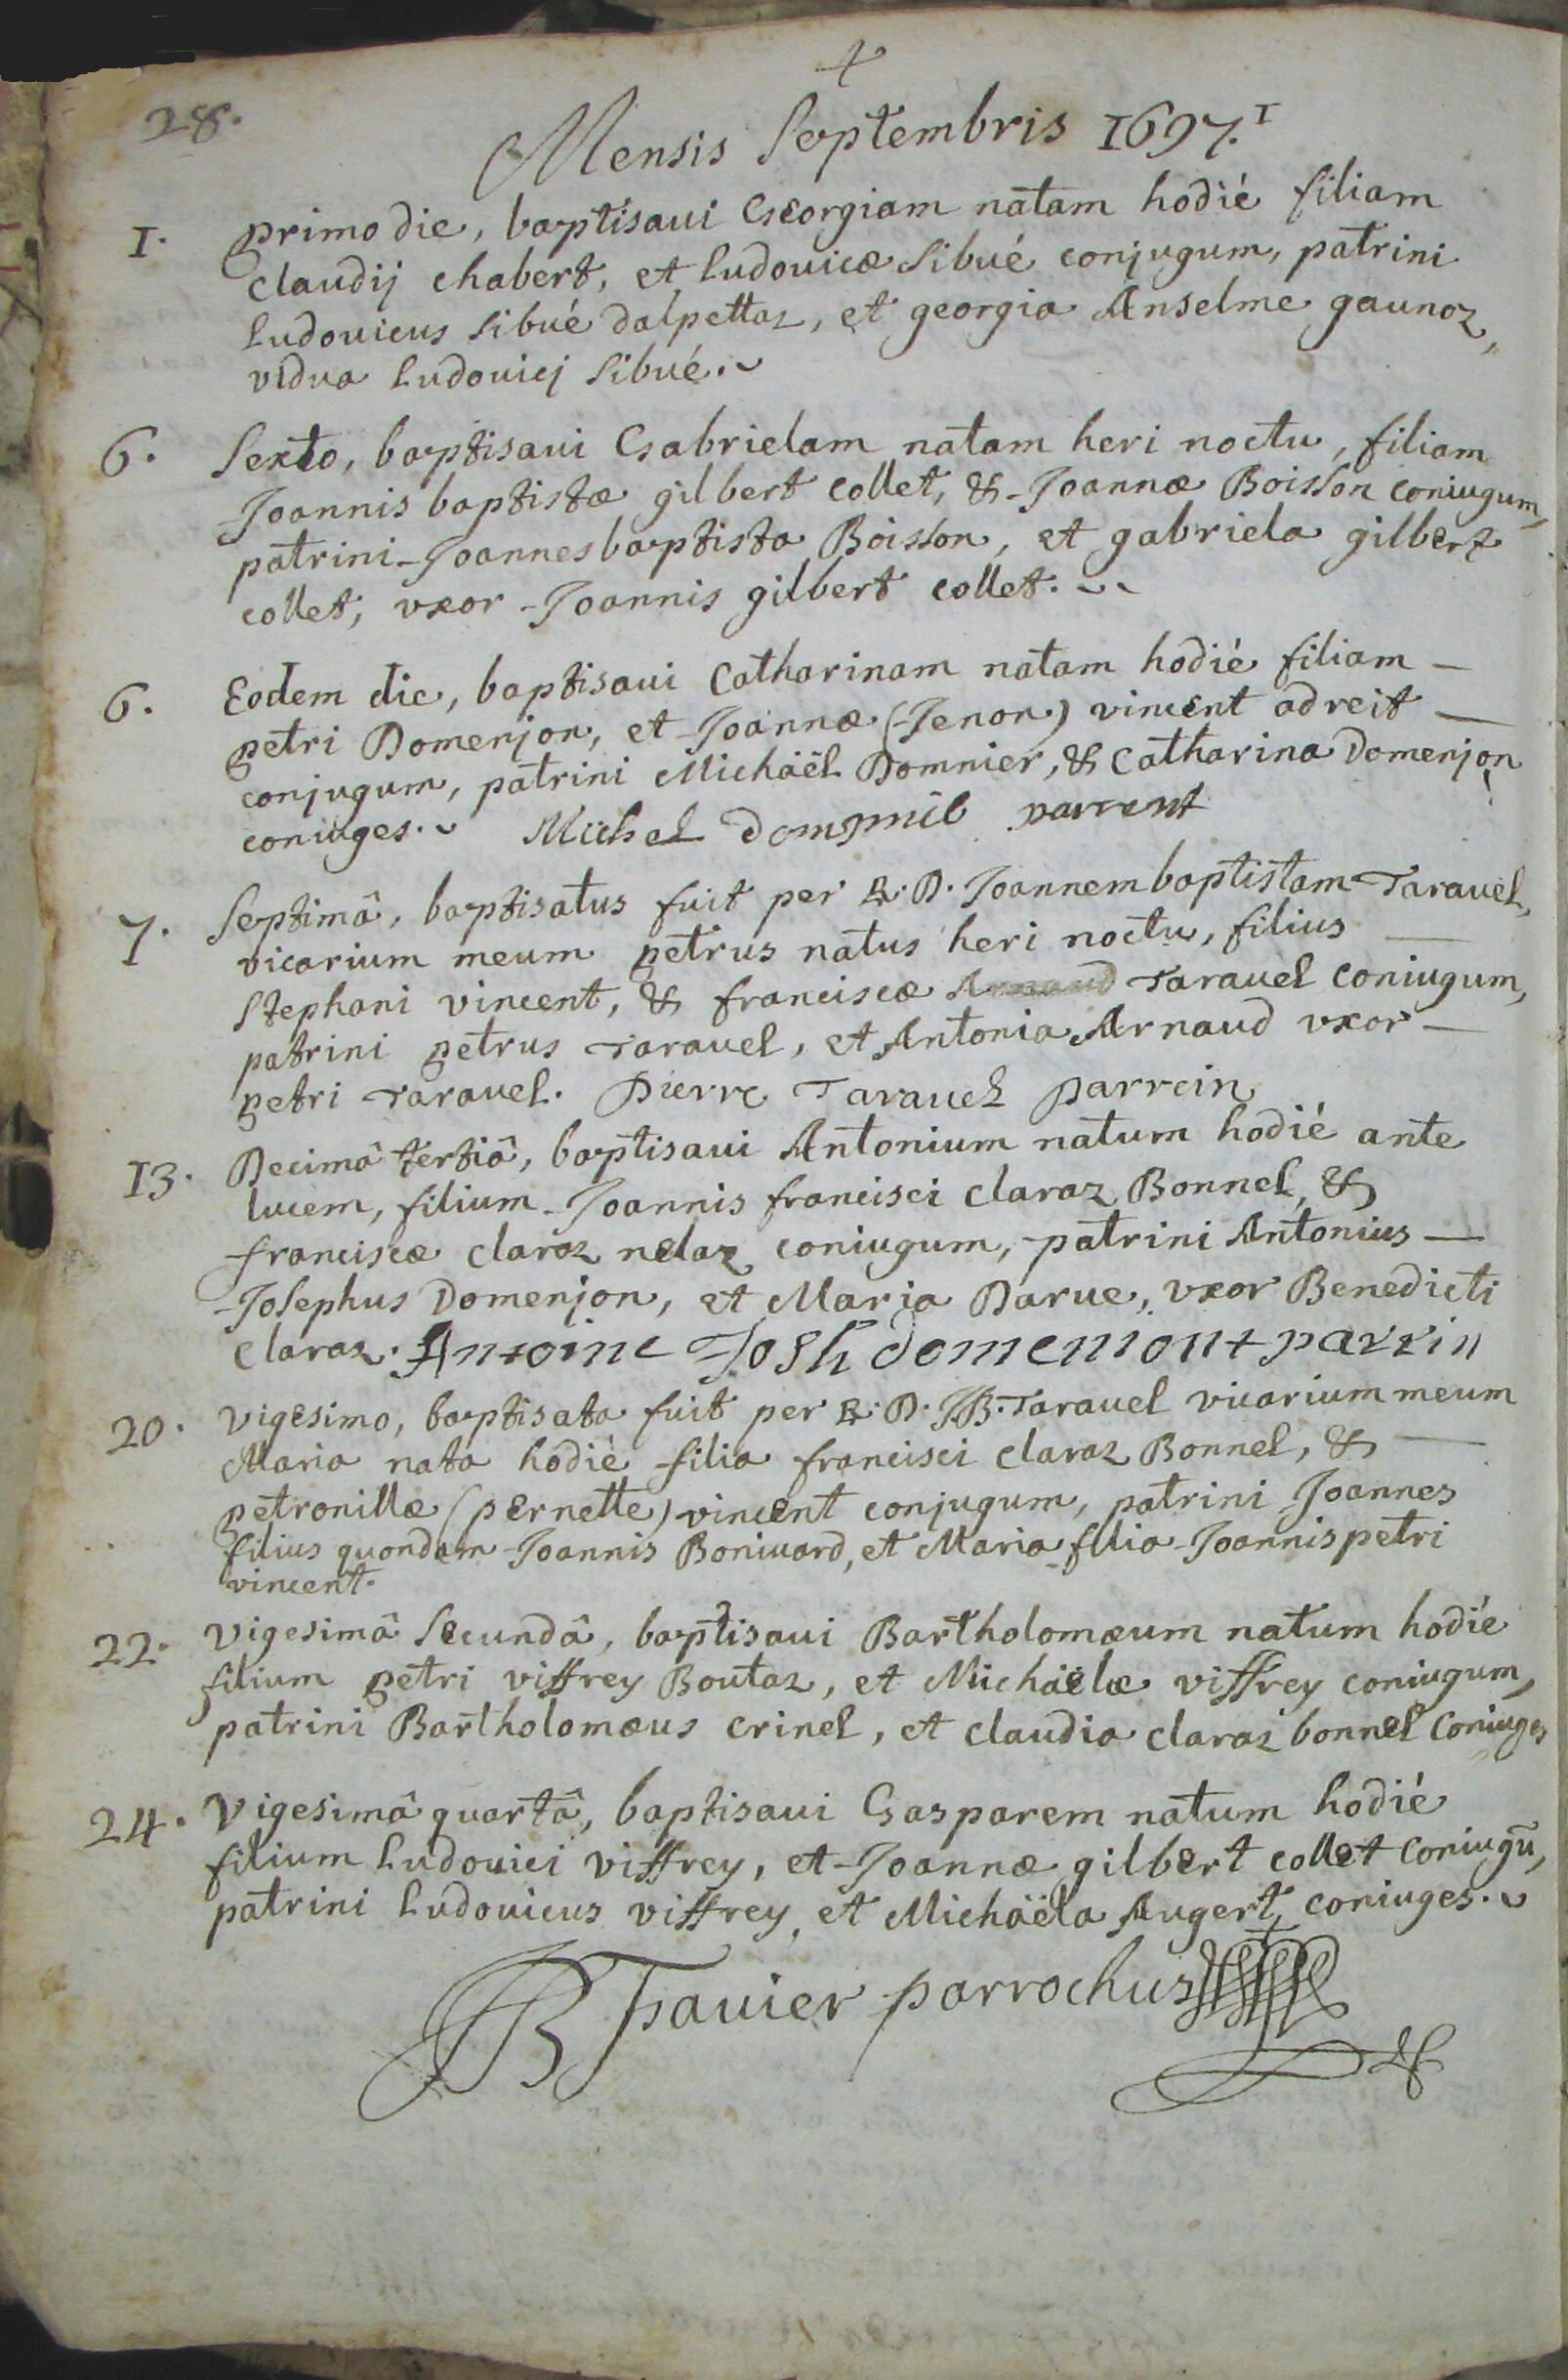 28.
Mensis Septembris 1697.
1. primo die, baptisaui Georgiam natam hodié filiam
claudij chabert, et ludouicæ Sibué conjugum, patrini
ludouicus Sibué dalpettaz, et georgia Anselme gaunoz,
vidua ludouicj Sibué.
6. Sexto, baptisaui Gabrielam natam heri noctu, filiam
Joannis baptistæ gilbert collet, & Joannæ Boisson coniugum,
patrini Joannes baptista Boisson, et gabriela gilbert
collet, vxor Joannis gilbert collet.
6. Eodem die, baptisaui Catharinam natam hodié filiam
petri Domenjon, et Joannæ (Jenon) vincent adreit
conjugum, patrini Michäel Domnier, & Catharina Domenjon
coniuges. Michel parrent
7. Septimâ, baptisatus fuit per R. D. Joannem baptistam Tarauel,
vicarium meum petrus natus heri noctu, filius
Stephani vincent, & franciscæ Tarauel coniugum,
patrini petrus Tarauel, et Antonia Arnaud vxor
petri Tarauel. Pierre Tarauel parrein
13. Decimâ tertiâ, baptisaui Antonium natum hodié ante
lucem, filium Joannis francisci claraz Bonnel, &
franciscæ claraz nelaz coniugum, patrini Antonius
Josephus Domenjon, et Maria Darue, vxor Benedicti
claraz. Antoine Josh domeniont parrin
20. vigesimo, baptisata fuit per R. D. JB. Tarauel vicarium meum
Maria nata hodié filia francisci claraz Bonnel, &
petronillæ (pernette) vincent conjugum, patrini Joannes
filius quondam Joannis Boniuard, et Maria filia Joannis petri
vincent.
22. vigesimâ Secundâ, baptisaui Bartholomæum natum hodié
filium petri viffrey Boutaz, et Michäelæ viffrey coniugum,
patrini Bartholomæus crinel, et claudia claraz bonnel Coniuges
24. Vigesimâ quartâ, baptisaui Gasparem natum hodié
filium ludouici viffrey, et Joannæ gilbert collet coniugū,
patrini ludouicus viffrey, et Michäela Augert, coniuges.
JB parrochus